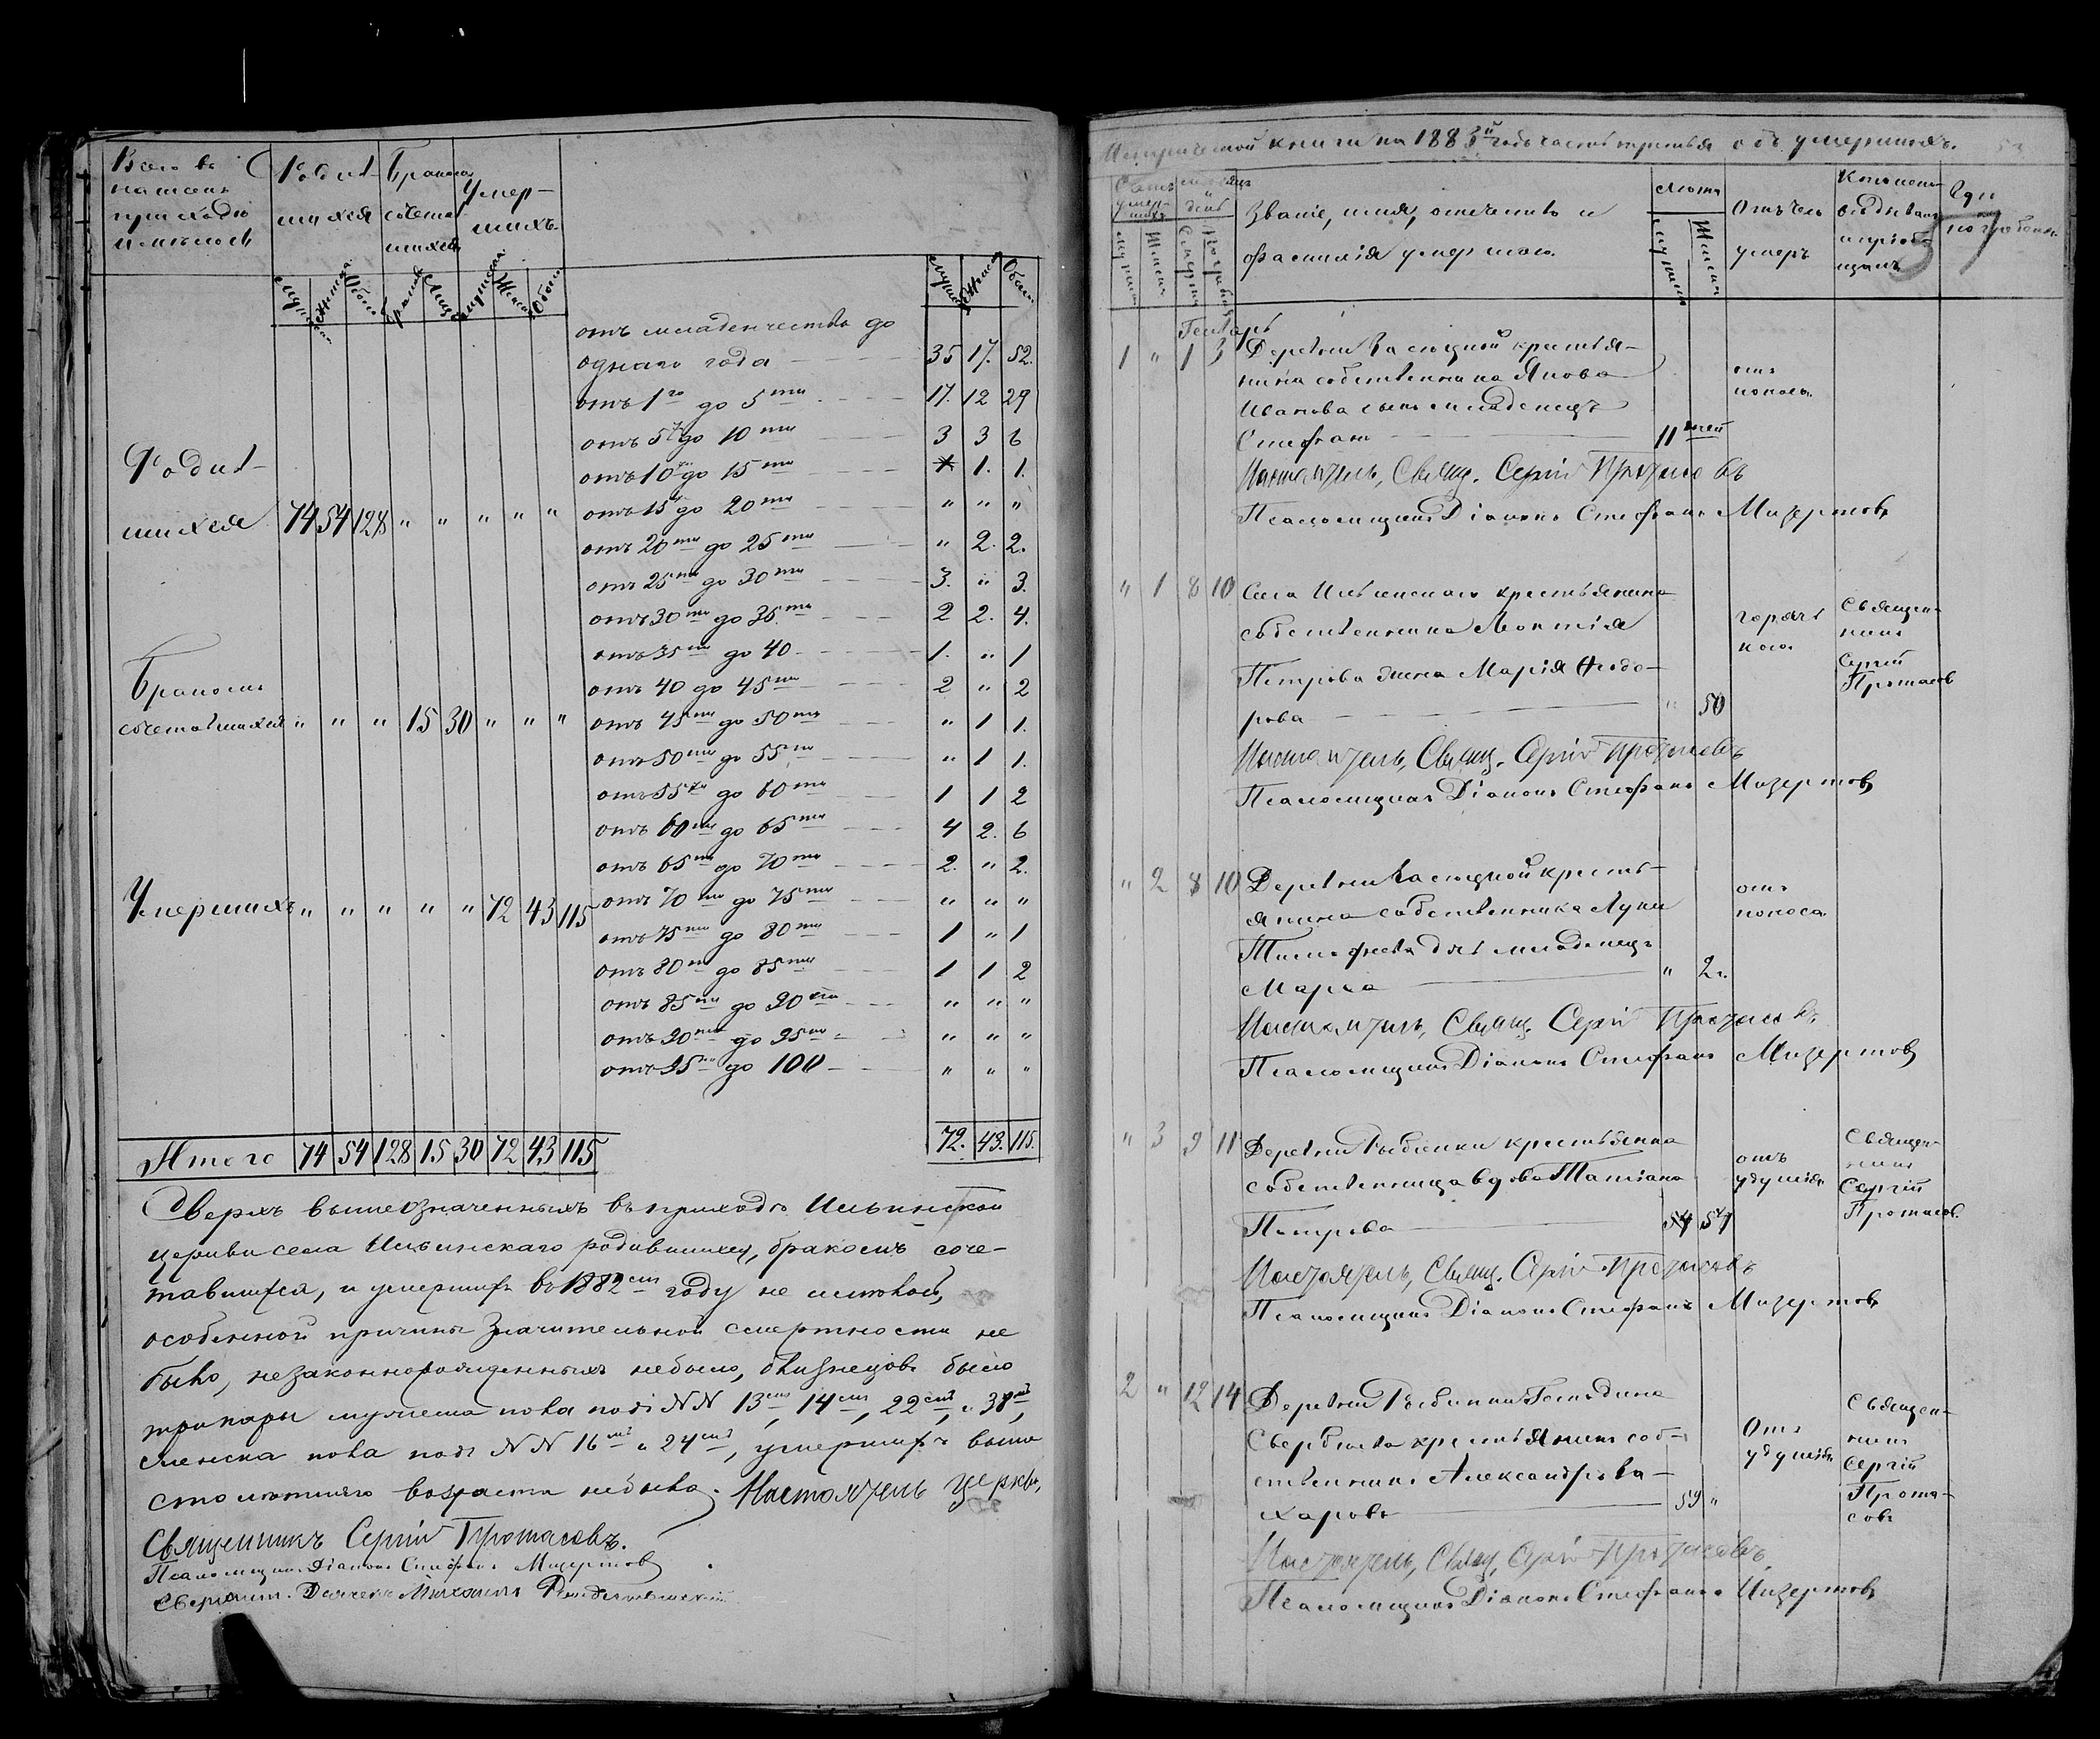 Всего въ
нашемъ
приходѣ
имѣлось
Родив-
шихся
Бракомъ
сочетав
шихся
Умер-
шихъ
мужеска Женска Обоего Браковъ Лицъ мужеска Женска Обоего
мужеска Женска Обоего
отъ младенчества до
однаго года 35 17. 52.
отъ 1го до 5ти 17. 12 29
отъ 5ти до 10ти 3 3 6
отъ 10ти до 15ти 1. 1.
отъ 15ти до 20ти " " "
отъ 20ти до 25ти " 2. 2.
отъ 25ти до 30ти 3. " 3.
отъ 30ти до 35ти 2 2. 4.
отъ 35ти до 40 1. " 1
отъ 40 до 45ти 2 " 2
отъ 45ти до 50ти " 1 1.
отъ 50ти до 55ти " 1 1.
отъ 55ти до 60ти 1 1 2
отъ 60ти до 65ти 4 2. 6
отъ 65ти до 70ти 2. " 2.
отъ 70ти до 75ти " " "
отъ 75ти до 80ти 1 " 1
отъ 80ти до 85ти 1 1 2
отъ 85ти до 90ти " " "
отъ 90ти до 95ти " " "
отъ 95ти до 100 " " "
72. 43. 115.
Родив-
шихся 74 54 128 " " " " "
Бракомъ
сочетавшихся " " " 15 30 " " "
Умершихъ " " " " " 72 43 115
Итого 74 54 128 15 30 72 43 115
Сверхъ вышеозначенныхъ въ приходѣ Ильинской
церкви села Ильинскаго родившихся, бракомъ соче-
тавшихся, и умершихъ въ 1882мъ году не имѣлось,
особенной причины значительной смертности не
было, незаконнорожденныхъ небыло, близнецовъ было
три пары мужеска пола подъ NN 13мъ, 14мъ, 22мъ, и 38мъ,
женска пола подъ NN 16мъ и 24мъ, умершихъ выше
столѣтняго возраста небыло. Настоятель церкви,
Священникъ Сергій Протасовъ.
Псаломщикъ Діаконъ Стефанъ Мизеровъ
Метрической книги на 1883й годъ часть третья объ умершихъ.
57
Счетъ умер-шихъ
мѣсяцъ день
Званіе, имя, отчество и
фамилія умершаго.
Лѣта
Отъ чего
умеръ
Кто исповѣдывалъ и пріоб-щалъ
Гдѣ погребенъ
мужеска Женска Смерти Погребенія мужеска Женска
Генварь
1 " 1 3 Деревни Засюдной крестья-
нина собственника Якова
Иванова сынъ младенецъ
Стефанъ 11 дней
отъ
поноса.
Настоятель, Свящ. Сергій Протасовъ
Псаломщикъ Діаконъ Стефанъ Мизеровъ
" 1 8 10 Села Ильинскаго крестьянина
собственника Локтія
Петрова жена Марія Ѳедо-
рова " 50
горячкою
Священ-
никъ
Сергій
Протасов
Настоятель, Свящ. Сергій Протасовъ
Псаломщикъ Діаконъ Стефанъ Мизеровъ
" 2 8 10 Деревни Засюдной кресть-
янина собственника Луки
Тимофеева дочь младенецъ
Марѳа " 2 г.
отъ
поноса
Настоятель, Свящ. Сергій Протасовъ
Псаломщикъ Діаконъ Стефанъ Мизеровъ
" 3 9 11 Деревни крестьянка
собственница вдова Татіана
Петрова 54
отъ
удушія
Священ-
никъ
Сергій
Протасов.
Настоятель, Свящ. Сергій Протасовъ
Псаломщикъ Діаконъ Стефанъ Мизеровъ
2 " 12 14 Деревни
крестьянинъ соб-
ственникъ Александръ За-
харовъ 59 "
Отъ
удушія
Священ-
никъ
Сергій
Прота-
совъ
Настоятель, Свящ. Сергій Протасовъ
Псаломщикъ Діаконъ Стефанъ Мизеровъ